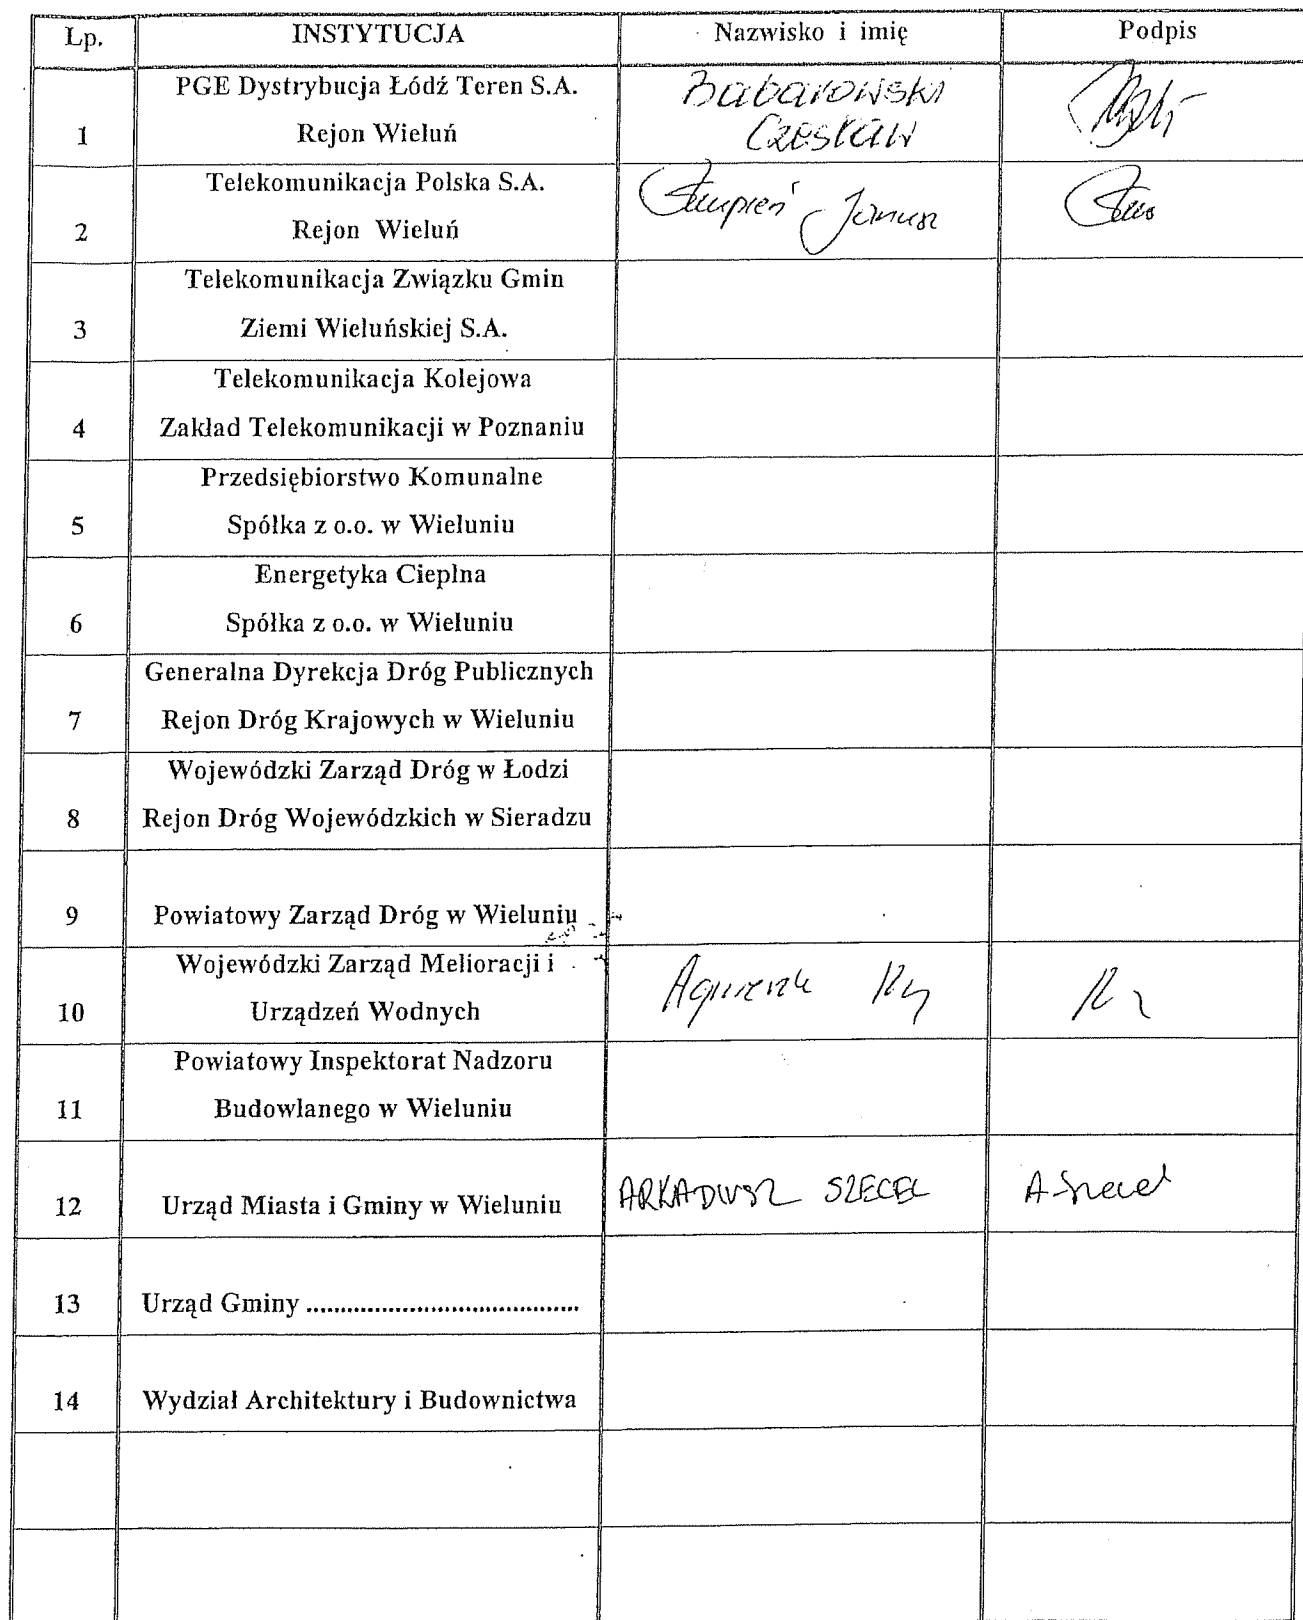 Lp. INSTYTUCJA Nazwisko i imię Podpis
PGE Dystrybucja Łódź Teren S.A.
1 Rejon Wieluń
Babarowski
Czesław
Telekomunikacja Polska S.A.
2 Rejon Wieluń
Stupień Janusz
Telekomunikacja Związku Gmin
3 Ziemi Wieluńskiej S.A.
Telekomunikacja Kolejowa
4 Zakład Telekomunikacji w Poznaniu
Przedsiębiorstwo Komunalne
5 Spółka z o.o. w Wieluniu
Energetyka Cieplna
6 Spółka z o.o. w Wieluniu
Generalna Dyrekcja Dróg Publicznych
7 Rejon Dróg Krajowych w Wieluniu
Wojewódzki Zarząd Dróg w Łodzi
8 Rejon Dróg Wojewódzkich w Sieradzu
9 Powiatowy Zarząd Dróg w Wieluniu
Wojewódzki Zarząd Melioracji i
10 Urządzeń Wodnych
Powiatowy Inspektorat Nadzoru
11 Budowlanego w Wieluniu
12 Urząd Miasta i Gminy w Wieluniu ARKADIUSZ SZECEL A. Szecel
13 Urząd Gminy ........................................
14 Wydział Architektury i Budownictwa